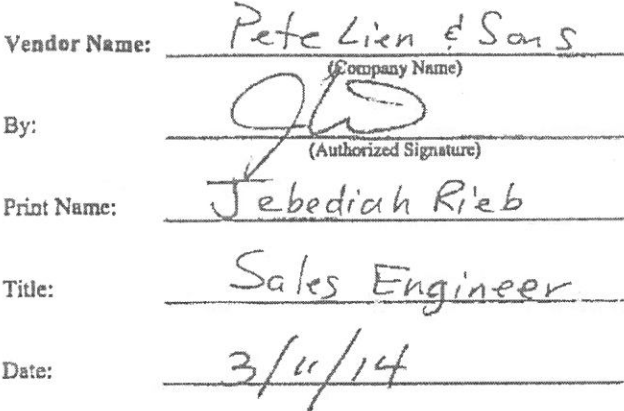 Vendor Name: Pete Lien & Sons
(Company Name)
By:
(Authorized Signature)
Print Name: Jebediah Rieb
Title: Sales Engineer
Date: 3/11/14